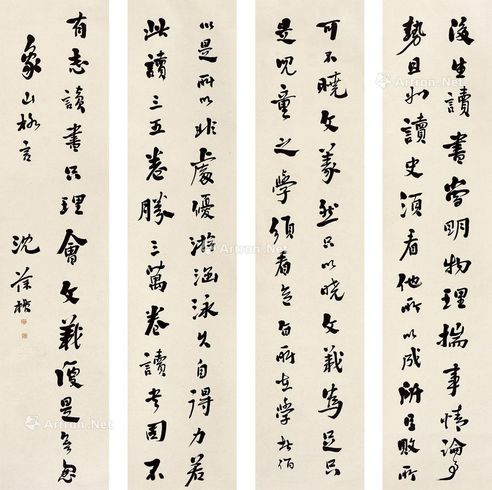 後生讀書當明物理揣事情論事
勢且如讀史須看他所以成所以敗所
可不曉文義然只以曉文義為是只
是兒童之學須看意旨所在學者
以是所以非處優游涵泳久自得力若
此讀三五卷勝三萬卷讀書固不
有志讀書只理會文義便是無志
象山格言
沈葆楨
Artron.Net